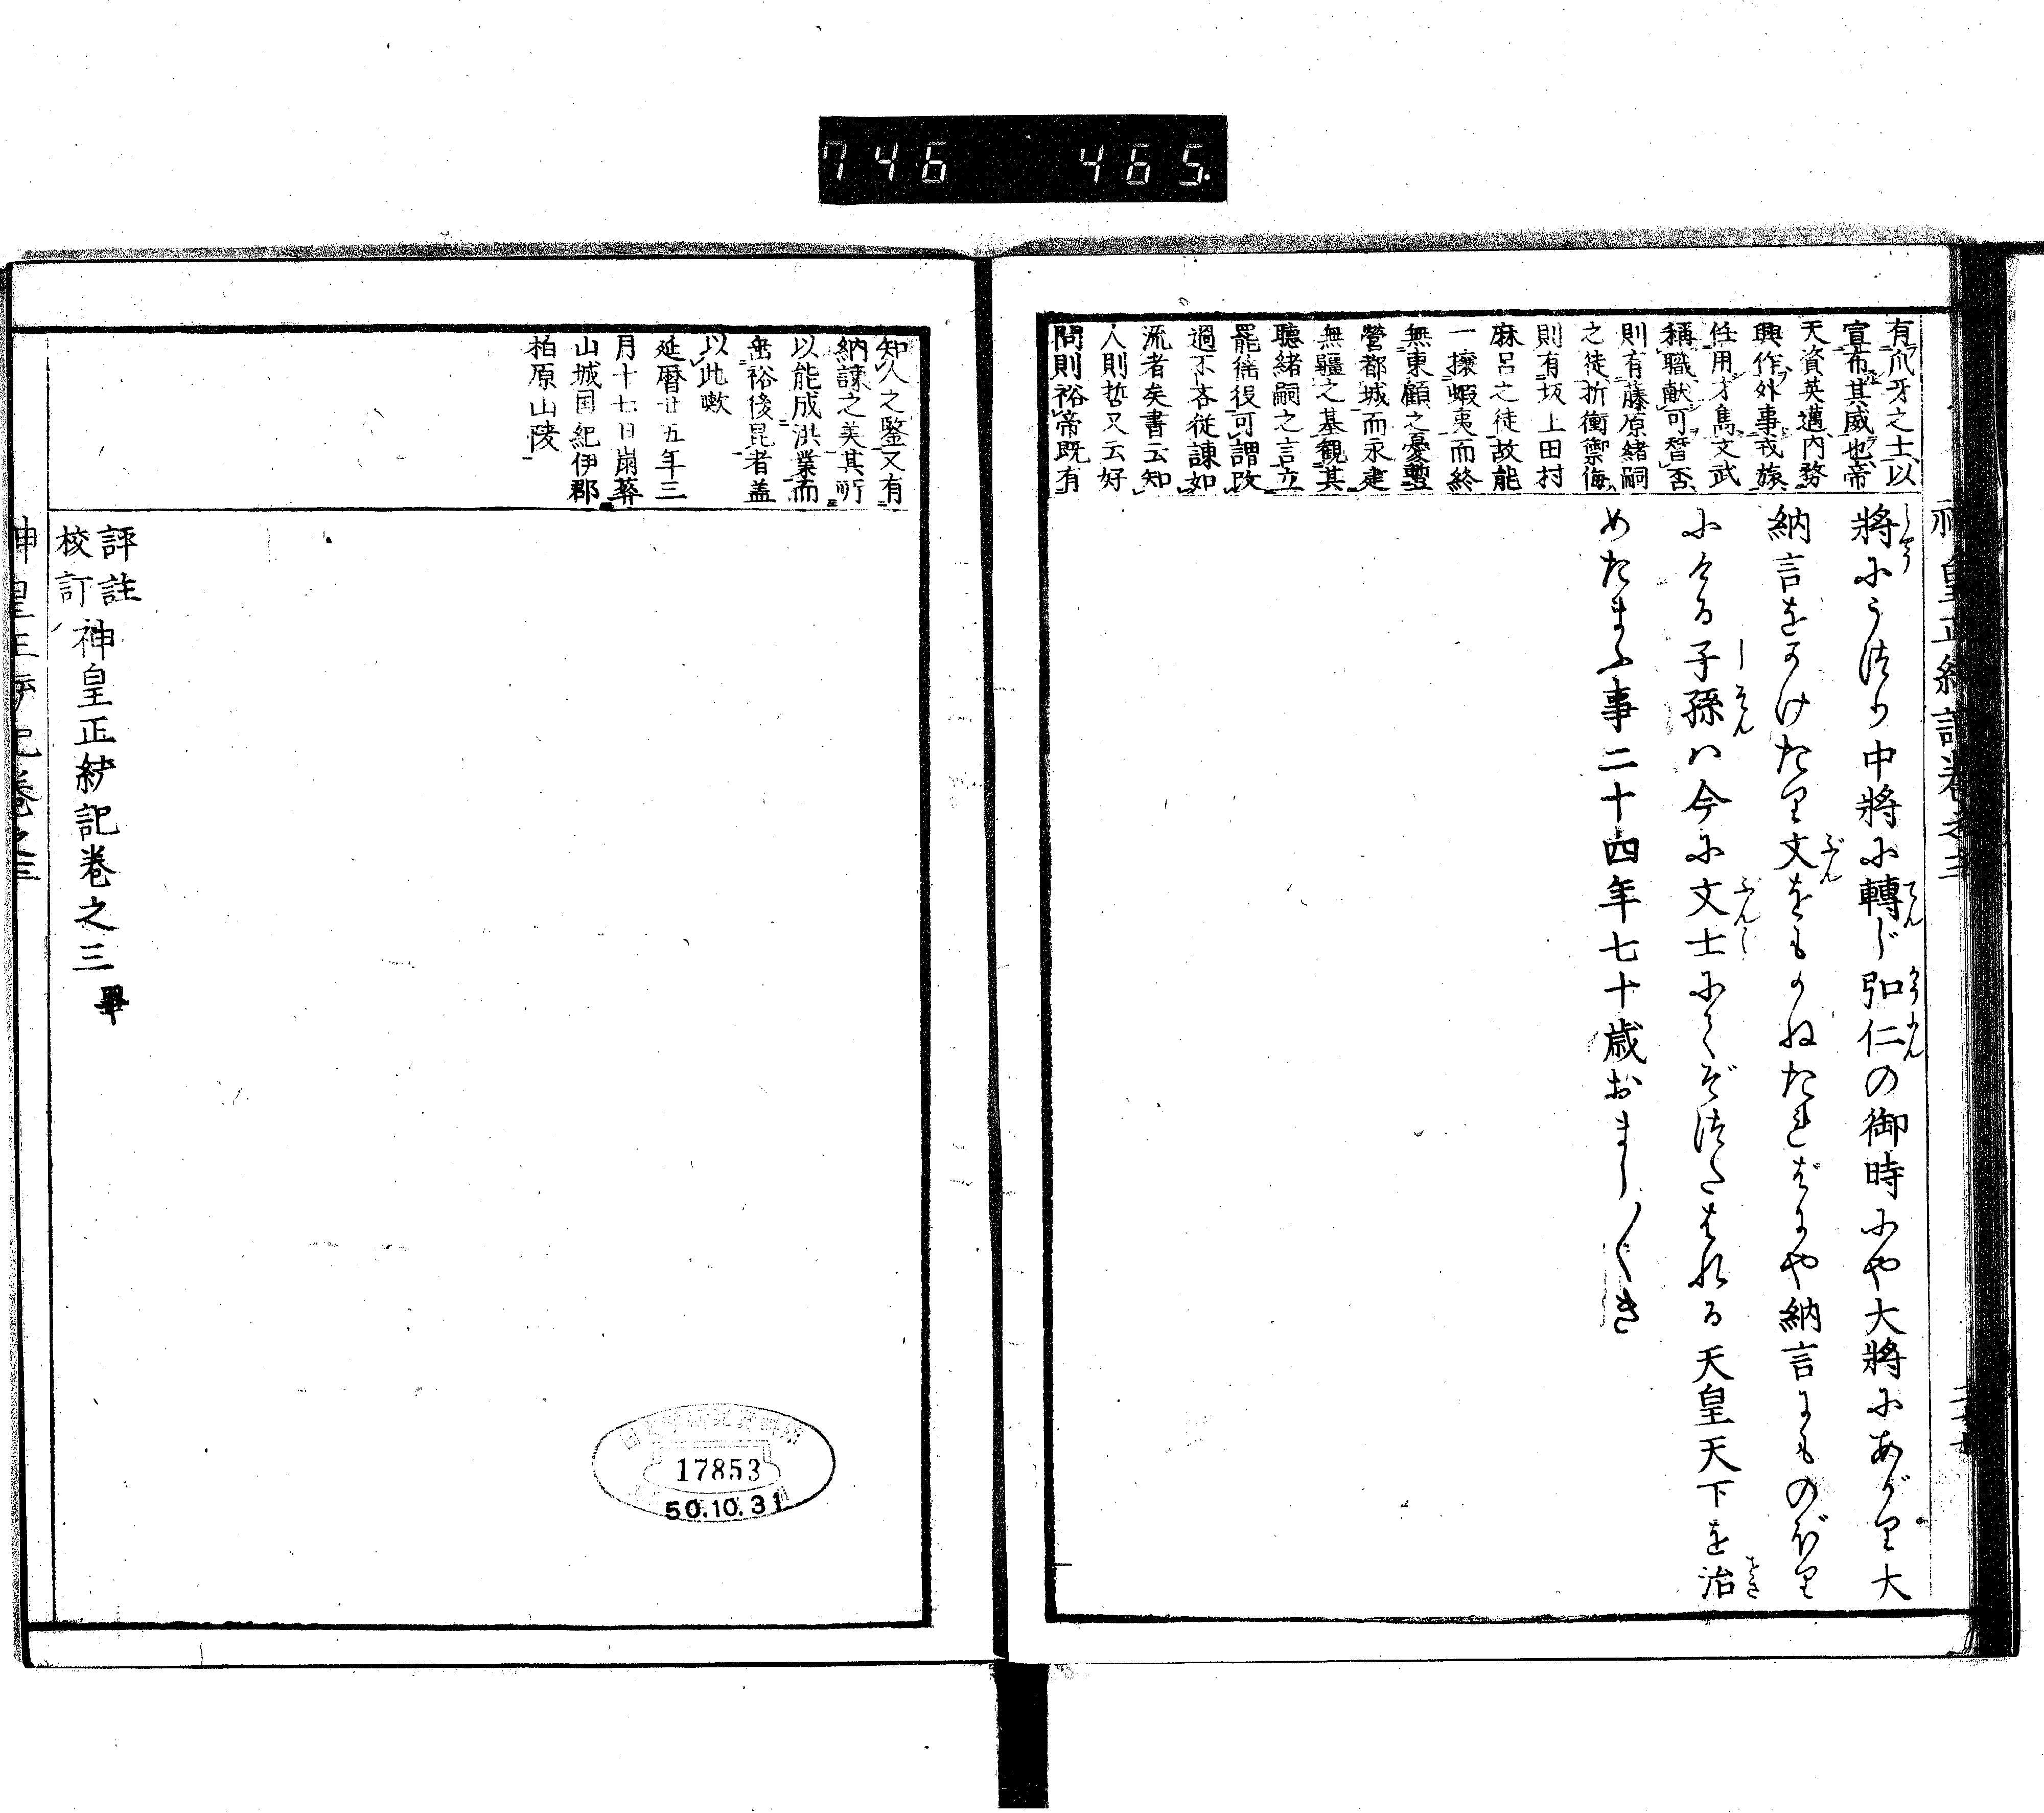 746 465.
有爪牙之士以
宣布其威也帝
天資英邁内務
興作外事戎旅
任用才雋文武
稱職献可替否
則有藤原緒嗣
之徒折衝禦侮
則有坂上田村
麻呂之徒故能
一攘蝦夷而終
無東顧之憂塹
營都城而永建
無疆之基観其
聴緒嗣之言立
罷徭役可謂改
過不吝従諌如
流者矣書云知
人則哲又云好
問則裕帝既有
將にうつり中將に轉じ弘仁の御時にや大將にあがり大
納言をかけたり文をもかねたればにや納言にものぼり
にける子孫ハ今に文士にてぞつたはれる天皇天下を治
めたまふ事二十四年七十歳おまし〳〵き
知人之鑒又有
納諌之美其所
以能成洪業而
垂裕後昆者蓋
以此歟
延暦廿五年三
月十七日崩葬
山城国紀伊郡
柏原山陵
評註
校訂
神皇正統記巻之三畢
17853
50.10.31